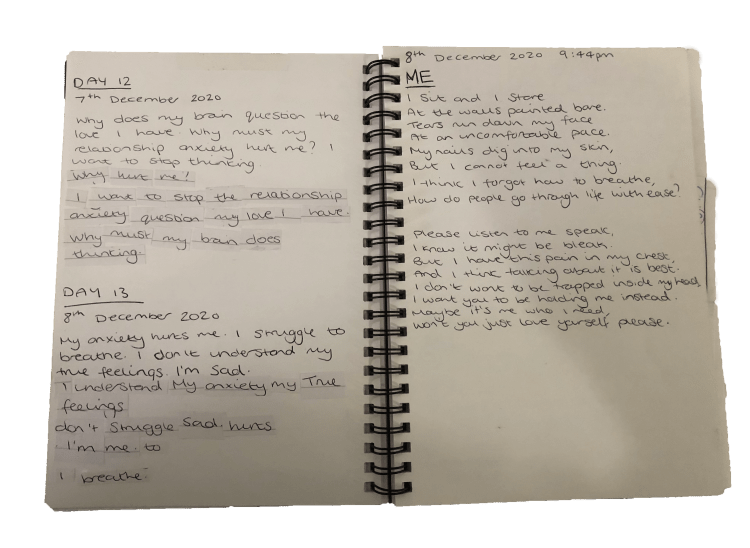 DAY 12
7th December 2020
Why does my brain question the
love I have. Why must my
relationship anxiety hurt me? I
want to stop thinking.
Why hurt me?
I want to stop the relationship
anxiety question my love I have.
Why must my brain does
thinking.
DAY 13
8th December 2020
My anxiety hurts me. I struggle to
breathe. I don't understand my
true feelings. I'm sad.
I understand My anxiety my True
feelings
don't struggle Sad. hurts
I'm me. to
I breathe
8th December 2020 9:44pm
ME
I sit and I stare
At the walls painted bare.
Tears run down my face
At an uncomfortable pace.
My nails dig into my skin,
But I cannot feel a thing.
I think I forgot how to breathe,
How do people go through life with ease?
Please listen to me speak,
I know it might be bleak.
But I have this pain in my chest,
And I think talking about it is best.
I don't want to be trapped inside my head
I want you to be holding me instead.
Maybe it's me who I need,
won't you just love yourself please.